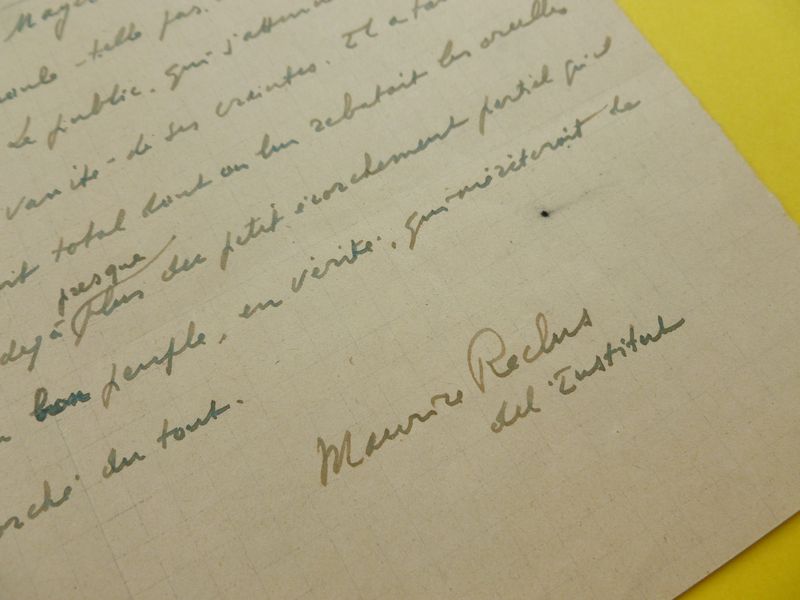 oule-t-elle pas.
Le public, qui s'attend
vanité - de ses craintes. Il a
total dont on lui rebattait les oreilles
presque
déjà plus du petit écorchement partiel qu'il
bon peuple, en vérité, qui mériterait de
orché du tout.
Maurice Reclus
de l'Institut